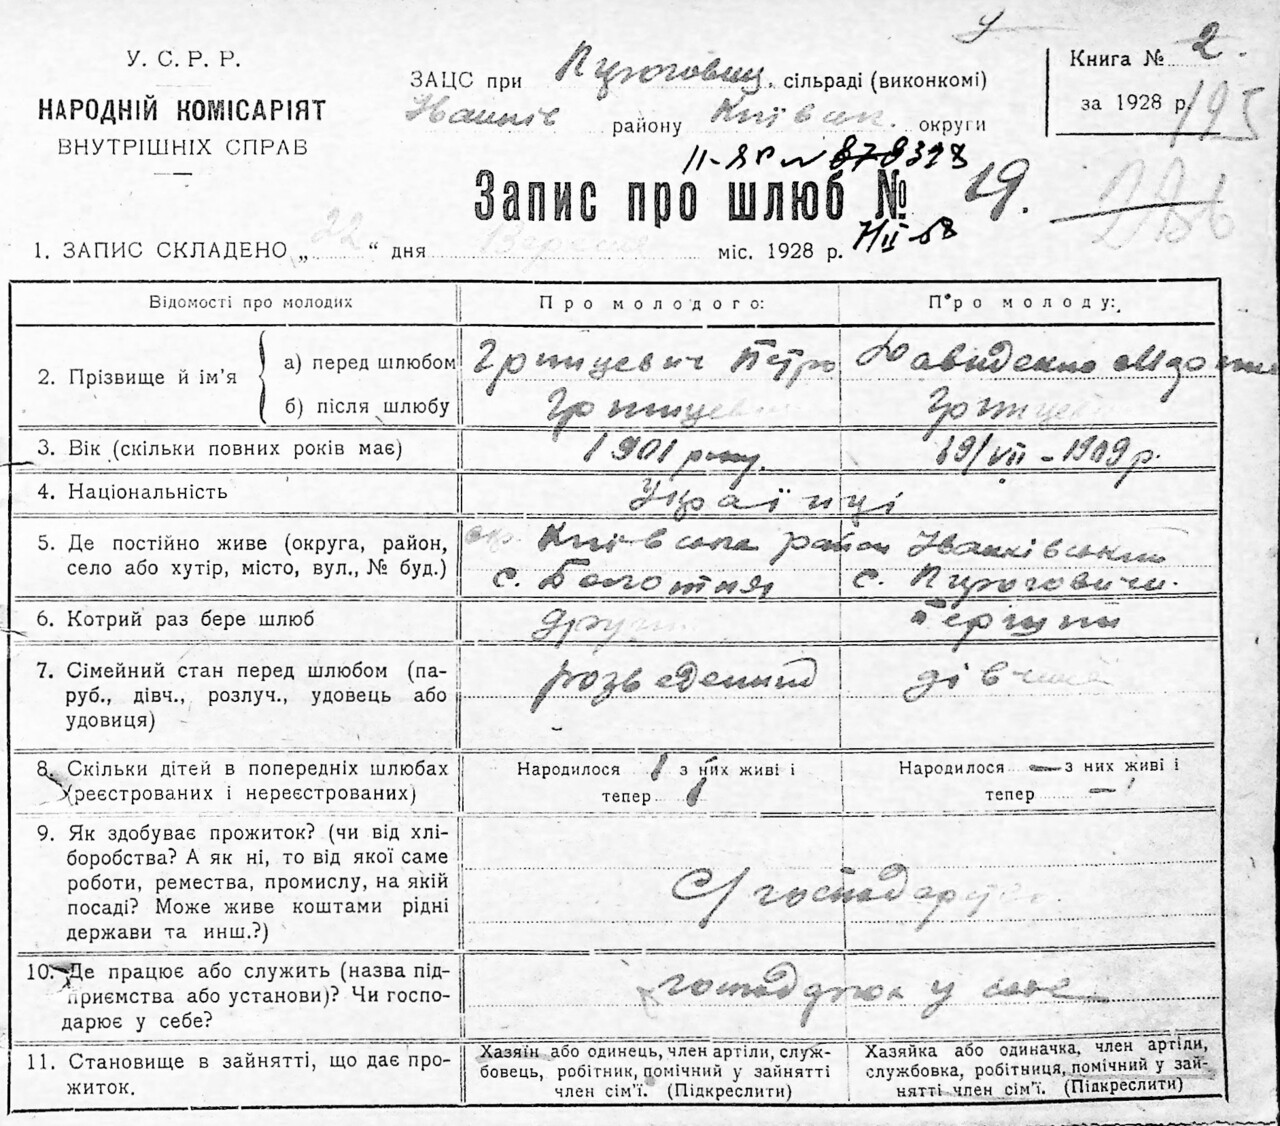 У. С. Р. Р.
НАРОДНІЙ КОМІСАРІЯТ
ВНУТРІШНІХ СПРАВ
ЗАЦС при Пироговиц. сільраді (виконкомі)
Іванків району Київськ. округи
Книга № 2.
за 1928 р.
195
II-ЯР № 878328
Запис про шлюб № 19.
7/II-58
1. ЗАПИС СКЛАДЕНО „ 22 “ дня Вересня міс. 1928 р.
Відомості про молодих Про молодого: Про молоду:
2. Прізвище й ім’я
а) перед шлюбом Грищевич Петро Давиденко
б) після шлюбу
3. Вік (скільки повних років має) 1901 року. 19/VII – 1909 р.
4. Національність Українці
5. Де постійно живе (округа, район, село або хутір, місто, вул., № буд.)
окр. Київська район Іванківський
с. Болотня с. Пироговичи.
6. Котрий раз бере шлюб други перший
7. Сімейний стан перед шлюбом (па-
руб., дівч., розлуч., удовець або
удовиця)
розведений дівчина
8. Скільки дітей в попередніх шлюбах
(реєстрованих і нереєстрованих)
Народилося 1 з них живі і
тепер 1
Народилося — з них живі і
тепер —
9. Як здобуває прожиток? (чи від хлі-
боробства? А як ні, то від якої саме
роботи, ремества, промислу, на якій
посаді? Може живе коштами рідні
держави та инш.?)
С/господарство
10. Де працює або служить (назва під-
приємства або установи)? Чи госпо-
дарює у себе?
у себе
11. Становище в зайнятті, що дає про-
житок.
Хазяїн або одинець, член артілі, служ-
бовець, робітник, помічний у зайнятті
член сім’ї. (Підкреслити)
Хазяйка або одиначка, член артіли,
службовка, робітниця, помічний у зай-
нятті член сім’ї. (Підкреслити)